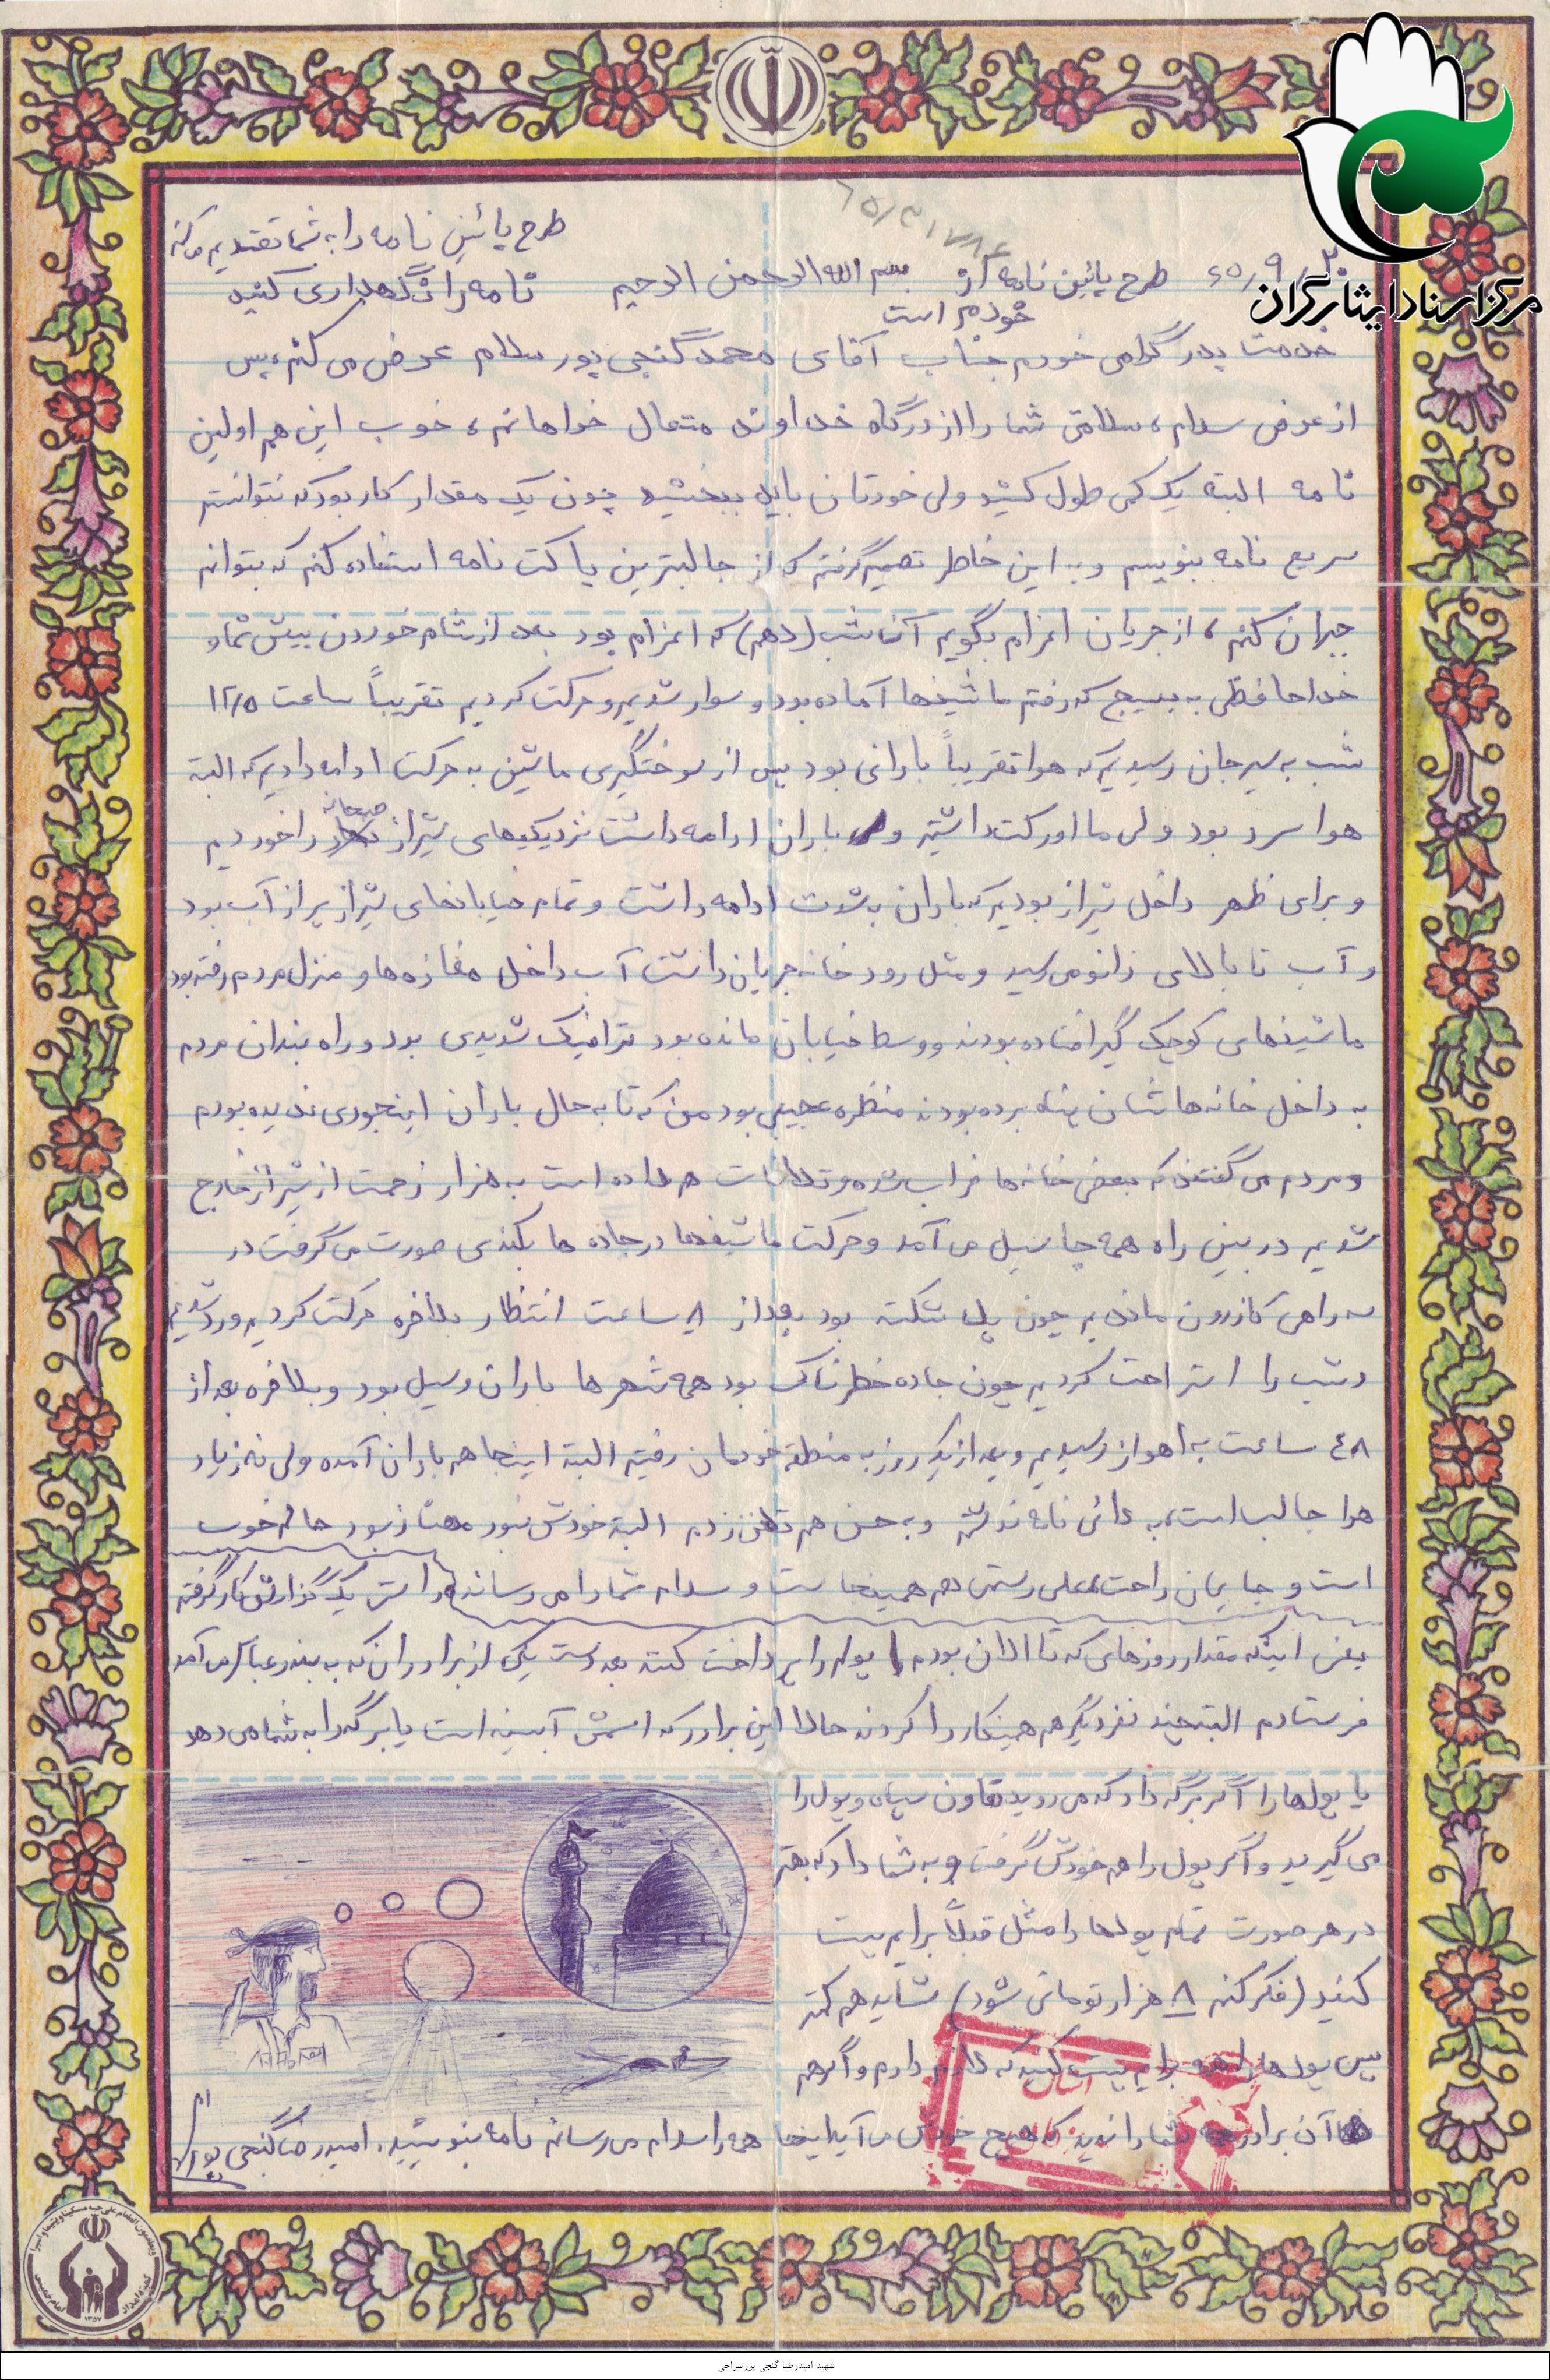 طرح پائین نامه را به شما تقدیم می‌کنم
۶۵/۹/۲۰ طرح پائین نامه از بسم الله الرحمن الرحیم نامه را نگهداری کنید
خودم است
مرکز اسناد ایثارگران
خدمت پدر گرامی خودم جناب آقای محمد گنجی پور سلام عرض می کنم، پس
از عرض سلام، سلامتی شما را از درگاه خداوند متعال خواهانم، خوب این هم اولین
نامه البته یک کمی طول کشید ولی خودتان باید ببخشید چون یک مقدار کار بود که نتوانستم
سریع نامه بنویسم و به این خاطر تصمیم گرفتم که از جالبترین پاکت نامه استفاده کنم که بتوانم
جبران کنم، از جریان اعزام بگویم آن شب (دهم) که اعزام بود بعد از شام خوردن پیش شما و
خداحافظی به بسیج که رفتم ماشینها آماده بود و سوار شدیم و حرکت کردیم تقریباً ساعت ۱۲/۵
شب به سیرجان رسیدیم که هوا تقریباً بارانی بود پس از سوختگیری ماشین به حرکت ادامه دادیم که البته
هوا سرد بود ولی ما اورکت داشتیم و باران ادامه داشت نزدیکیهای شیراز صبحانه را خوردیم
و برای ظهر داخل شیراز بودیم که باران به شدت ادامه داشت و تمام خیابانهای شیراز پر از آب بود
و آب تا بالای زانو می رسید و مثل رودخانه جریان داشت آب داخل مغازه ها و منزل مردم رفته بود
ماشینهای کوچک گیر افتاده بودند و وسط خیابان مانده بود ترافیک شدیدی بود و راه بندان مردم
به داخل خانه هاشان پناه برده بودند منظره عجیبی بود من که تا به حال باران اینجوری ندیده بودم
و مردم می گفتند که بعضی خانه ها خراب شده و تلفات هم داده است به هزار زحمت از شیراز خارج
شدیم در بین راه همه جا سیل می آمد و حرکت ماشینها در جاده ها بکندی صورت می گرفت در
سه راهی کازرون ماندیم چون پل شکسته بود بعد از ۸ ساعت انتظار بلاخره حرکت کردیم و رد شدیم
و شب را استراحت کردیم چون جاده خطرناک بود همه شهرها باران و سیل بود و بلاخره بعد از
۴۸ ساعت به اهواز رسیدیم و بعد از یک روز به منطقه خودمان رفتیم البته اینجا هم باران آمده ولی نه زیاد
هوا جالب است، به دائی نامه نوشتم و به حسن هم تلفن زدم البته خودش نبود حالم خوب
است و جایمان راحت، علی رستمی هم همینجاست و سلام شما را می رساند راستی یک گزارش کار گرفته
یعنی اینکه مقدار روزهای که تا الان بودم پولم را پرداخت کنند بعد دست یکی از برادران که به بندرعباس می آمد
فرستادم البته چند نفر دیگر هم همینکار را کردند حالا این برادر که اسمش آبسینه است یا برگه را به شما می دهد
یا پولها را اگر برگه داد که می روید تعاون سپاه و پول را
می گیرید و اگر پول را هم خودش گرفت و به شما داد که بهتر
در هر صورت تمام پولها را مثل قبلاً برایم پست
کنید (فکر کنم ۸ هزار تومانی شود) شاید هم کمتر
پس پولها را همه برایم پست کنید که کار دارم و اگر هم
آن برادر شما را ندید که هیچ خودش می آید اینجا همه را سلام می رسانم نامه بنویسید. امیدرضا گنجی پور
کمیته امداد امام خمینی
۱۳۵۷
شهید امیدرضا گنجی پورسراجی